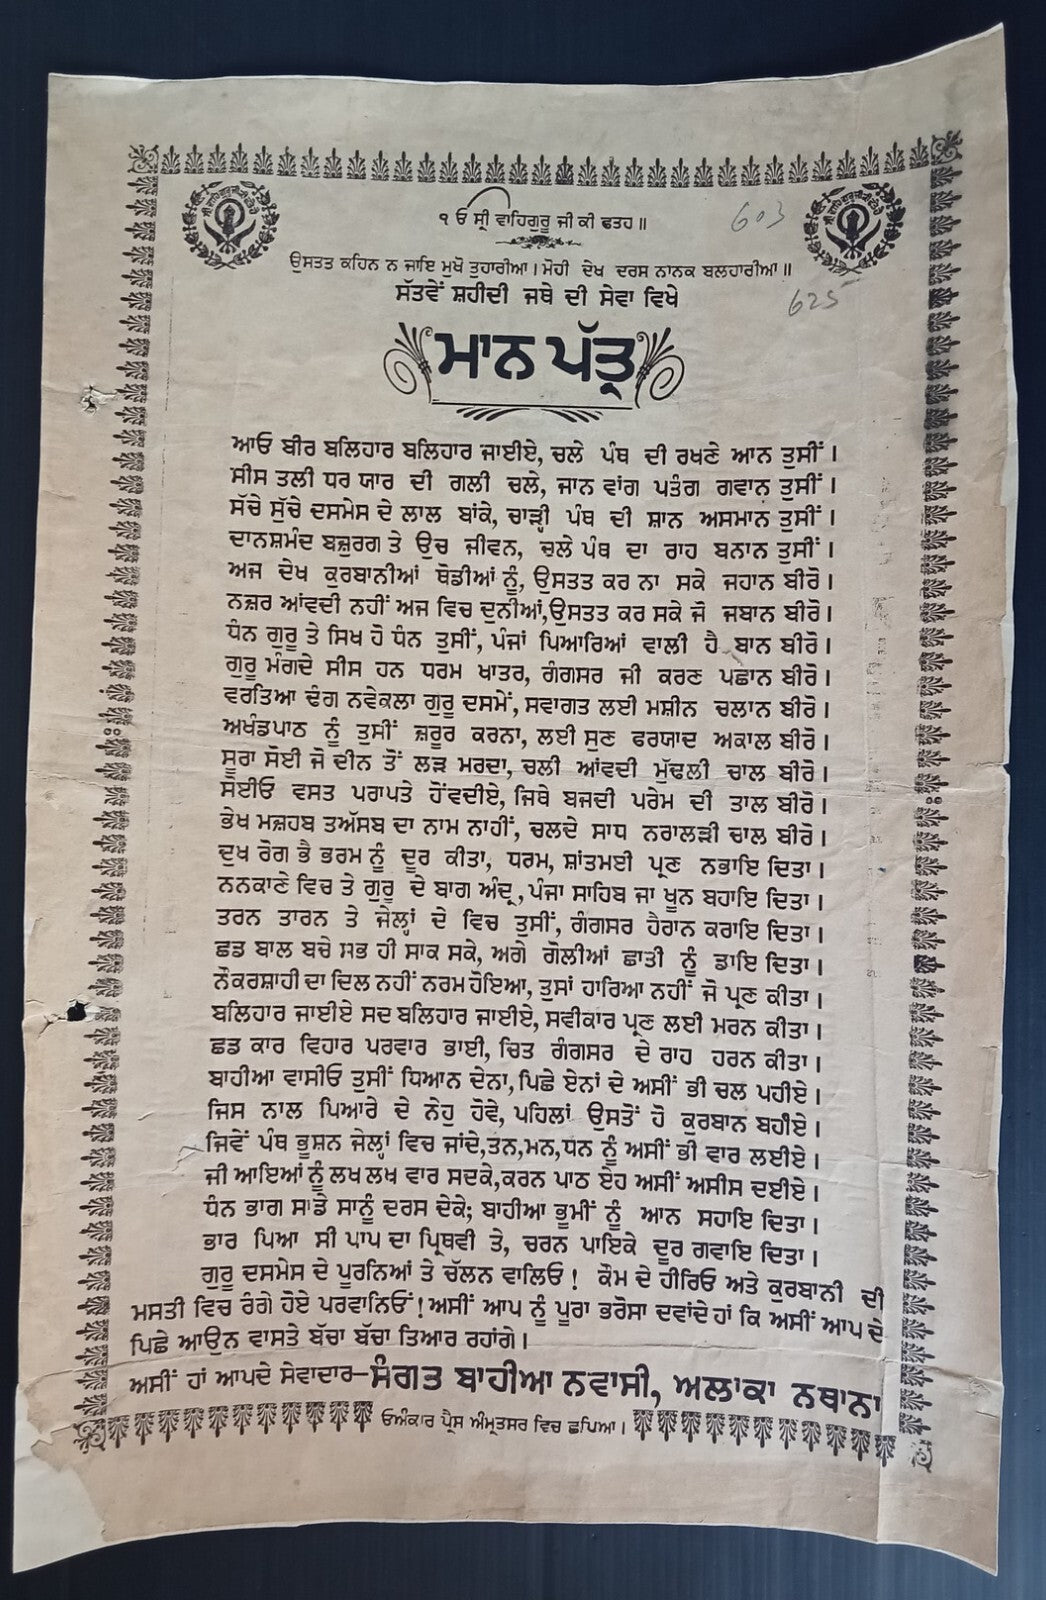 ੧ ਓ ਸ੍ਰੀ ਵਾਹਿਗੁਰੂ ਜੀ ਕੀ ਫਤਹ ॥
603
ਉਸਤਤ ਕਹਿਨ ਨ ਜਾਇ ਮੁਖੋ ਤੁਹਾਰੀਆ। ਮੋਹੀ ਦੇਖ ਦਰਸ ਨਾਨਕ ਬਲਹਾਰੀਆ॥
ਸੱਤਵੇਂ ਸ਼ਹੀਦੀ ਜਥੇ ਦੀ ਸੇਵਾ ਵਿਖੇ
625
ਮਾਨ ਪੱਤ੍ਰ
ਆਓ ਬੀਰ ਬਲਿਹਾਰ ਬਲਿਹਾਰ ਜਾਈਏ, ਚਲੇ ਪੰਥ ਦੀ ਰਖਣੇ ਆਨ ਤੁਸੀਂ।
ਸੀਸ ਤਲੀ ਧਰ ਯਾਰ ਦੀ ਗਲੀ ਚਲੇ, ਜਾਨ ਵਾਂਗ ਪਤੰਗ ਗਵਾਨ ਤੁਸੀਂ।
ਸੱਚੇ ਸੁੱਚੇ ਦਸਮੇਸ ਦੇ ਲਾਲ ਬਾਂਕੇ, ਚਾੜ੍ਹੀ ਪੰਥ ਦੀ ਸ਼ਾਨ ਅਸਮਾਨ ਤੁਸੀਂ।
ਦਾਨਸ਼ਮੰਦ ਬਜ਼ੁਰਗ ਤੇ ਉਚ ਜੀਵਨ, ਚਲੇ ਪੰਥ ਦਾ ਰਾਹ ਬਨਾਨ ਤੁਸੀਂ।
ਅਜ ਦੇਖ ਕੁਰਬਾਨੀਆਂ ਥੋਡੀਆਂ ਨੂੰ, ਉਸਤਤ ਕਰ ਨਾ ਸਕੇ ਜਹਾਨ ਬੀਰੋ।
ਨਜ਼ਰ ਆਂਵਦੀ ਨਹੀਂ ਅਜ ਵਿਚ ਦੁਨੀਆਂ,ਉਸਤਤ ਕਰ ਸਕੇ ਜੋ ਜਬਾਨ ਬੀਰੋ।
ਧੰਨ ਗੁਰੂ ਤੇ ਸਿਖ ਹੋ ਧੰਨ ਤੁਸੀਂ, ਪੰਜਾਂ ਪਿਆਰਿਆਂ ਵਾਲੀ ਹੈ ਬਾਨ ਬੀਰੋ।
ਗੁਰੂ ਮੰਗਦੇ ਸੀਸ ਹਨ ਧਰਮ ਖਾਤਰ, ਗੰਗਸਰ ਜੀ ਕਰਣ ਪਛਾਨ ਬੀਰੋ।
ਵਰਤਿਆ ਢੰਗ ਨਵੇਕਲਾ ਗੁਰੂ ਦਸਮੇਂ, ਸਵਾਗਤ ਲਈ ਮਸ਼ੀਨ ਚਲਾਨ ਬੀਰੋ।
ਅਖੰਡਪਾਠ ਨੂੰ ਤੁਸੀਂ ਜ਼ਰੂਰ ਕਰਨਾ, ਲਈ ਸੁਣ ਫਰਯਾਦ ਅਕਾਲ ਬੀਰੋ।
ਸੂਰਾ ਸੋਈ ਜੋ ਦੀਨ ਤੋਂ ਲੜ ਮਰਦਾ, ਚਲੀ ਆਂਵਦੀ ਮੁੱਢਲੀ ਚਾਲ ਬੀਰੋ।
ਸੋਈਓ ਵਸਤ ਪਰਾਪਤੇ ਹੋਂਵਦੀਏ, ਜਿਥੇ ਬਜਦੀ ਪਰੇਮ ਦੀ ਤਾਲ ਬੀਰੋ।
ਭੇਖ ਮਜ਼ਹਬ ਤਅੱਸਬ ਦਾ ਨਾਮ ਨਾਹੀਂ, ਚਲਦੇ ਸਾਧ ਨਰਾਲੜੀ ਚਾਲ ਬੀਰੋ।
ਦੁਖ ਰੋਗ ਭੈ ਭਰਮ ਨੂੰ ਦੂਰ ਕੀਤਾ, ਧਰਮ, ਸ਼ਾਂਤਮਈ ਪ੍ਰਣ ਨਭਾਇ ਦਿਤਾ।
ਨਨਕਾਣੇ ਵਿਚ ਤੇ ਗੁਰੂ ਦੇ ਬਾਗ ਅੰਦ੍ਰ, ਪੰਜਾ ਸਾਹਿਬ ਜਾ ਖੂਨ ਬਹਾਇ ਦਿਤਾ।
ਤਰਨ ਤਾਰਨ ਤੇ ਜੇਲ੍ਹਾਂ ਦੇ ਵਿਚ ਤੁਸੀਂ, ਗੰਗਸਰ ਹੈਰਾਨ ਕਰਾਇ ਦਿਤਾ।
ਛਡ ਬਾਲ ਬਚੇ ਸਭ ਹੀ ਸਾਕ ਸਕੇ, ਅਗੇ ਗੋਲੀਆਂ ਛਾਤੀ ਨੂੰ ਡਾਇ ਦਿਤਾ।
ਨੌਕਰਸ਼ਾਹੀ ਦਾ ਦਿਲ ਨਹੀਂ ਨਰਮ ਹੋਇਆ, ਤੁਸਾਂ ਹਾਰਿਆ ਨਹੀਂ ਜੋ ਪ੍ਰਣ ਕੀਤਾ।
ਬਲਿਹਾਰ ਜਾਈਏ ਸਦ ਬਲਿਹਾਰ ਜਾਈਏ, ਸਵੀਕਾਰ ਪ੍ਰਣ ਲਈ ਮਰਨ ਕੀਤਾ।
ਛਡ ਕਾਰ ਵਿਹਾਰ ਪਰਵਾਰ ਭਾਈ, ਚਿਤ ਗੰਗਸਰ ਦੇ ਰਾਹ ਹਰਨ ਕੀਤਾ।
ਬਾਹੀਆ ਵਾਸੀਓ ਤੁਸੀਂ ਧਿਆਨ ਦੇਨਾ, ਪਿਛੇ ਏਨਾਂ ਦੇ ਅਸੀਂ ਭੀ ਚਲ ਪਹੀਏ।
ਜਿਸ ਨਾਲ ਪਿਆਰੇ ਦੇ ਨੇਹੁ ਹੋਵੇ, ਪਹਿਲਾਂ ਉਸਤੋਂ ਹੋ ਕੁਰਬਾਨ ਬਹੀਏ।
ਜਿਵੇਂ ਪੰਥ ਭੂਸ਼ਨ ਜੇਲ੍ਹਾਂ ਵਿਚ ਜਾਂਦੇ,ਤਨ,ਮਨ,ਧਨ ਨੂੰ ਅਸੀਂ ਭੀ ਵਾਰ ਲਈਏ।
ਜੀ ਆਇਆਂ ਨੂੰ ਲਖ ਲਖ ਵਾਰ ਸਦਕੇ,ਕਰਨ ਪਾਠ ਏਹ ਅਸੀਂ ਅਸੀਸ ਦਈਏ।
ਧੰਨ ਭਾਗ ਸਾਡੇ ਸਾਨੂੰ ਦਰਸ ਦੇਕੇ; ਬਾਹੀਆ ਭੂਮੀਂ ਨੂੰ ਆਨ ਸਹਾਇ ਦਿਤਾ।
ਭਾਰ ਪਿਆ ਸੀ ਪਾਪ ਦਾ ਪ੍ਰਿਥਵੀ ਤੇ, ਚਰਨ ਪਾਇਕੇ ਦੂਰ ਗਵਾਇ ਦਿਤਾ।
ਗੁਰੂ ਦਸਮੇਸ ਦੇ ਪੂਰਨਿਆਂ ਤੇ ਚੱਲਨ ਵਾਲਿਓ! ਕੌਮ ਦੇ ਹੀਰਿਓ ਅਤੇ ਕੁਰਬਾਨੀ ਦੀ
ਮਸਤੀ ਵਿਚ ਰੰਗੇ ਹੋਏ ਪਰਵਾਨਿਓਂ! ਅਸੀਂ ਆਪ ਨੂੰ ਪੂਰਾ ਭਰੋਸਾ ਦਵਾਂਦੇ ਹਾਂ ਕਿ ਅਸੀਂ ਆਪ ਦੇ
ਪਿਛੇ ਆਉਨ ਵਾਸਤੇ ਬੱਚਾ ਬੱਚਾ ਤਿਆਰ ਰਹਾਂਗੇ।
ਅਸੀਂ ਹਾਂ ਆਪਦੇ ਸੇਵਾਦਾਰ–ਸੰਗਤ ਬਾਹੀਆ ਨਵਾਸੀ, ਅਲਾਕਾ ਨਥਾਨਾ
ਓਅੰਕਾਰ ਪ੍ਰੈਸ ਅੰਮ੍ਰਤਸਰ ਵਿਚ ਛਪਿਆ।